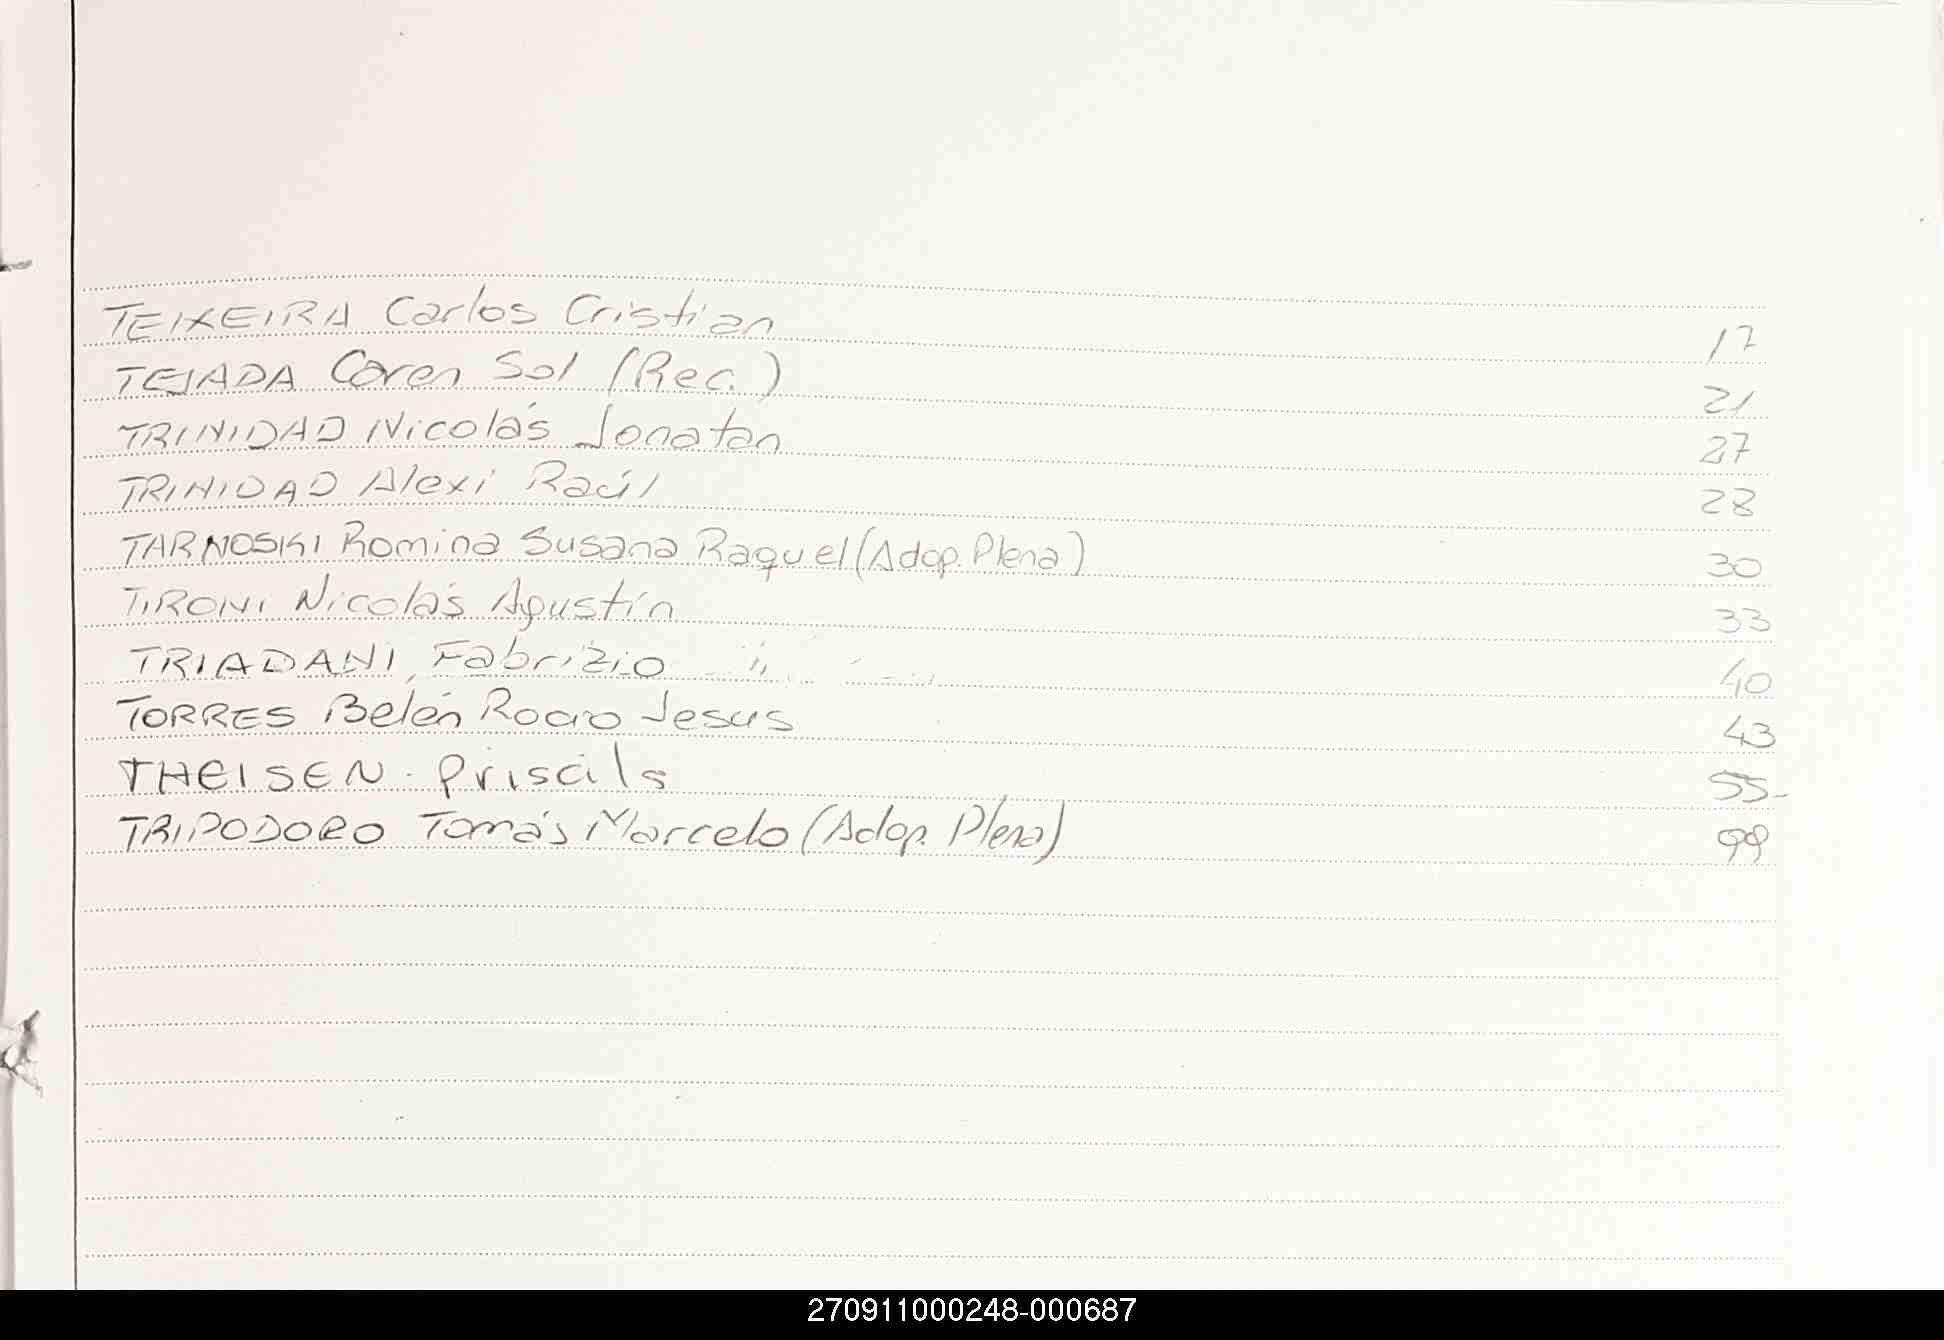 TEIXEIRA Carlos Cristian 17
TEJADA Coren Sol (Rec.) 21
TRINIDAD Nicolás Jonatan 27
TRINIDAD Alexi Raúl 28
TARNOSKI Romina Susana Raquel (Adop. Plena) 30
TIRONI Nicolás Agustín 33
TRIADANI, Fabrizio 40
TORRES Belén Rocio Jesus 43
THEISEN. Priscila 55-
TRIPODORO Tomás Marcelo (Adop. Plena) 99
270911000248-000687